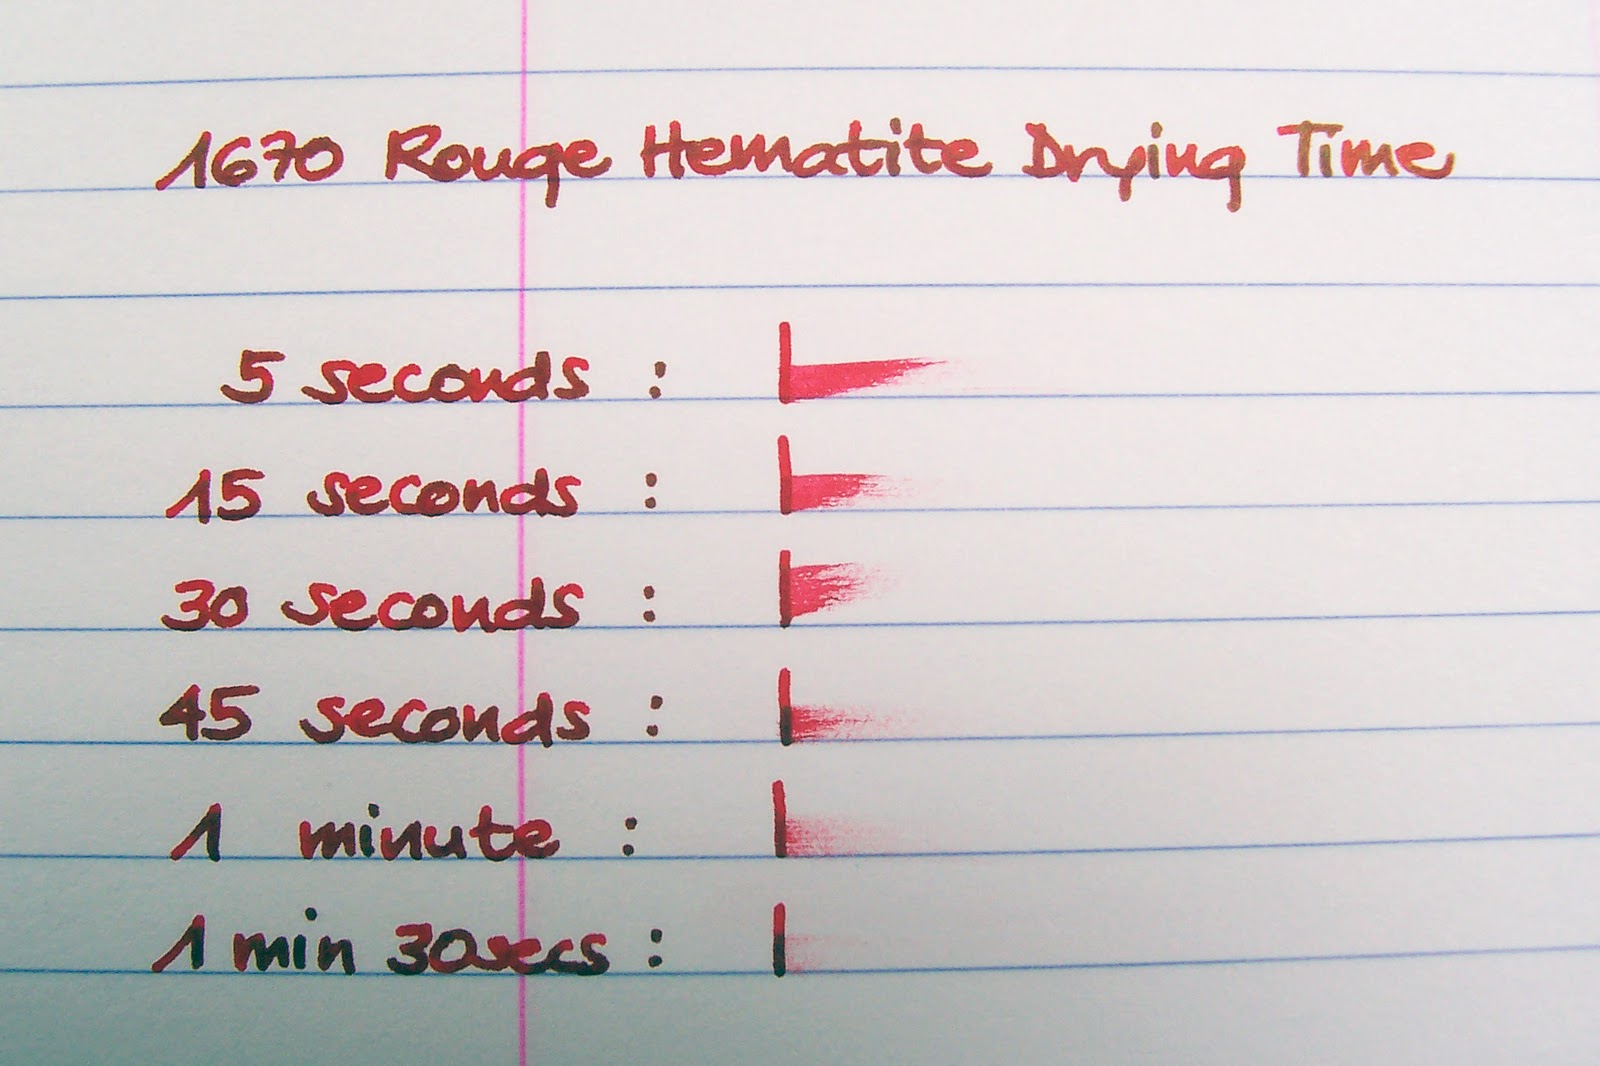 1670 Rouge Hematite Drying Time
5 seconds :
15 seconds :
30 seconds :
45 seconds :
1 minute :
1 min 30secs :